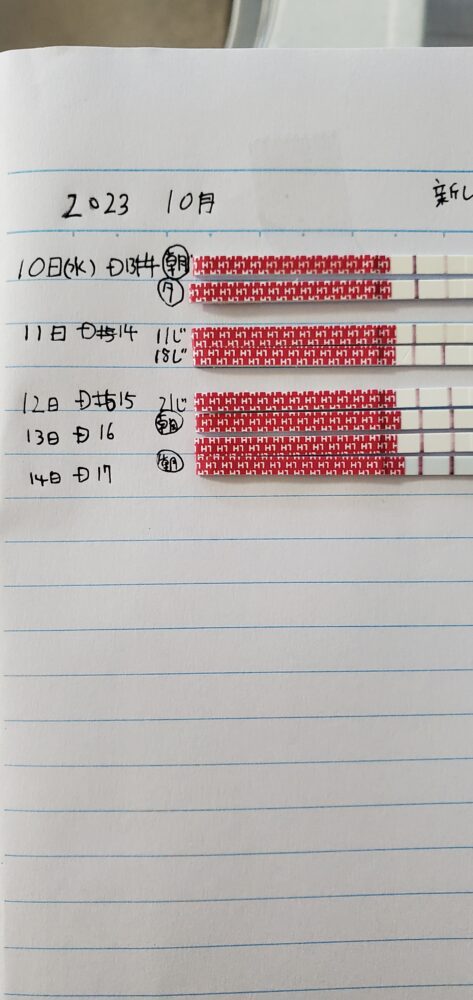 2023 10月 新し
10日(水) D13 朝
夕
11日 D14 11じ
18じ
12日 D15 21じ
13日 D16 朝
14日 D17 朝